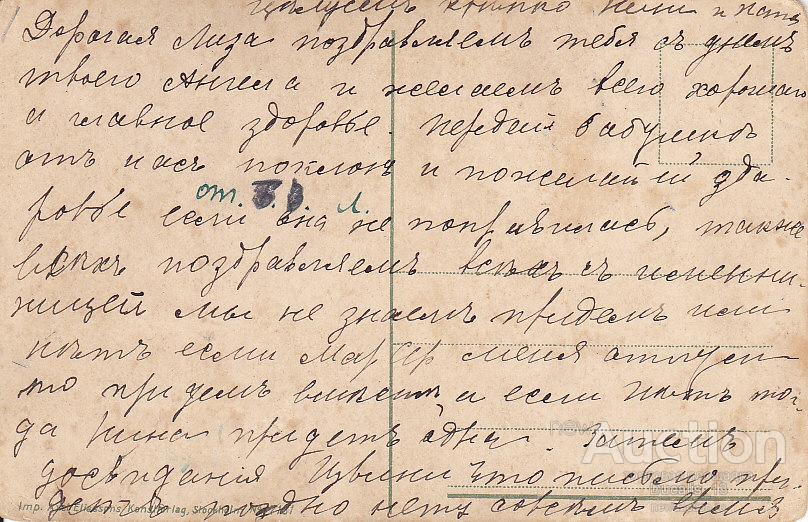 цалуемъ крѣпко Нени и папа
Дорогая Лиза поздравляемъ тебя съ днемъ
твоего Ангела и желаемъ всего хорошаго
и главное здоровье. передай бабушкѣ
отъ насъ поклонъ и пожелай ей здо-
ровье если она не поправилась, также
от. Л.
всѣхъ поздравляемъ всѣхъ съ именин-
ницей мы не знаемъ придемъ или
нѣтъ если меня отпустятъ
то придемъ вмѣстѣ и если нѣтъ то-
гда Нина придетъ одна. Затемъ
досвидания Извини что письмо при-
детъ поздно нету совсемъ
Imp. Axel Eliassons Konstförlag, Stockholm
Auction